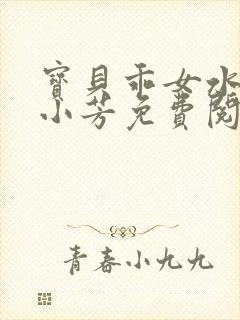 寶貝乖女水
小芳免費閱
青春小九九